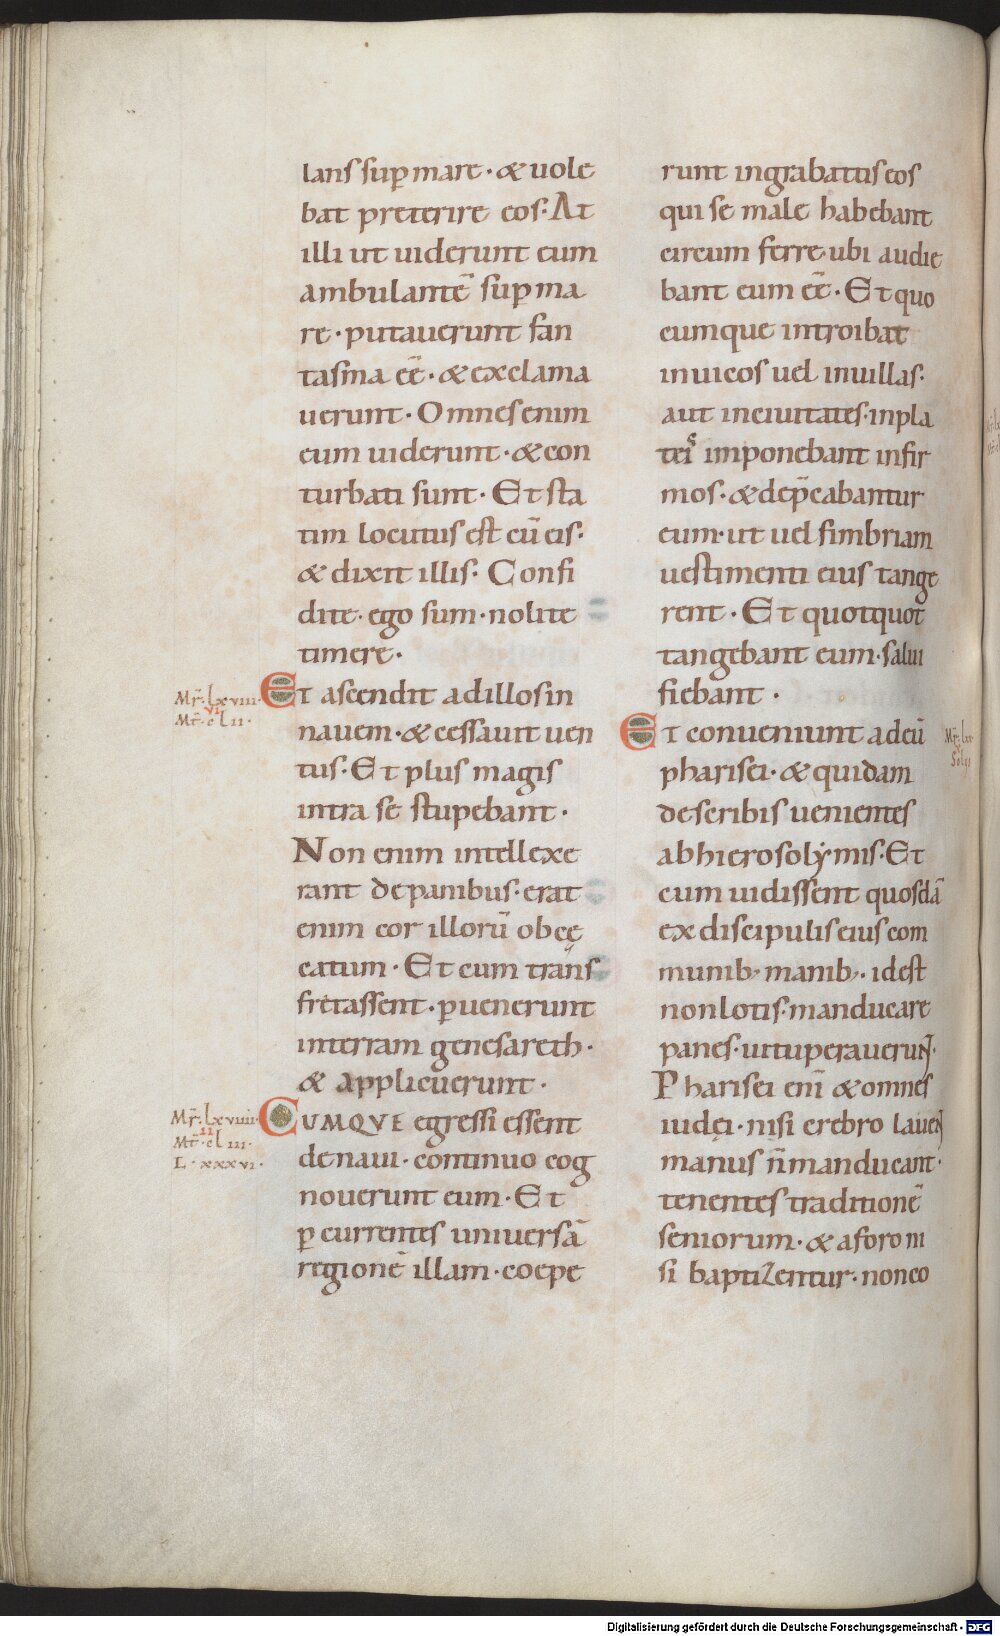 lans sup̄ mare · & uole
bat preterire eos · At
illi ut uiderunt eum
ambulantē sup̄ ma
re · putauerunt fan
tasma eē · & exclama
uerunt · Omnes enim
eum uiderunt · & con
turbati sunt · Et sta
tim locutus est cū eis ·
& dixit illis · Confi
dite · ego sum · nolite
timere ·
Mr̄ · lxviii ·
vi
Mt̄ · clii ·
Et ascendit ad illos in
nauem · & cessauit uen
tus · Et plus magis
intra se stupebant ·
Non enim intellexe
rant de panibus · erat
enim cor illorū obcę
catum · Et cum trans
fretassent · p̄uenerunt
in terram genesareth ·
& applicuerunt ·
Mr̄ · lxviiii ·
ii
Mt̄ · cliii ·
L · xxxvi ·
CUMQVE egressi essent
de naui · continuo cog
nouerunt eum · Et
p̄currentes uniuersā
regionē illam · coepe
runt in grabattis eos
qui se male habebant
circum ferre · ubi audie
bant eum eē · Et quo
cumque introibat
in uicos uel in uillas ·
aut in ciuitates · in pla
teis imponebant infir
mos · & dep̄cabantur
eum · ut uel fimbriam
uestimenti eius tange
rent · Et quotquot
tangebant eum · salui
fiebant ·
Et conueniunt ad eū
pharisei · & quidam
de scribis uenientes
ab hierosolymis · Et
cum uidissent quosdā
ex discipulis eius com
munib; manib; · id est
non lotis · manducare
panes · uituperauerunt ·
Pharisei eni̅ & omnes
iudęi · nisi crebro lauent
manus n̄ manducant ·
tenentes traditionē
seniorum · & a foro ni
si baptizentur · non co
Digitalisierung gefördert durch die Deutsche Forschungsgemeinschaft - DFG